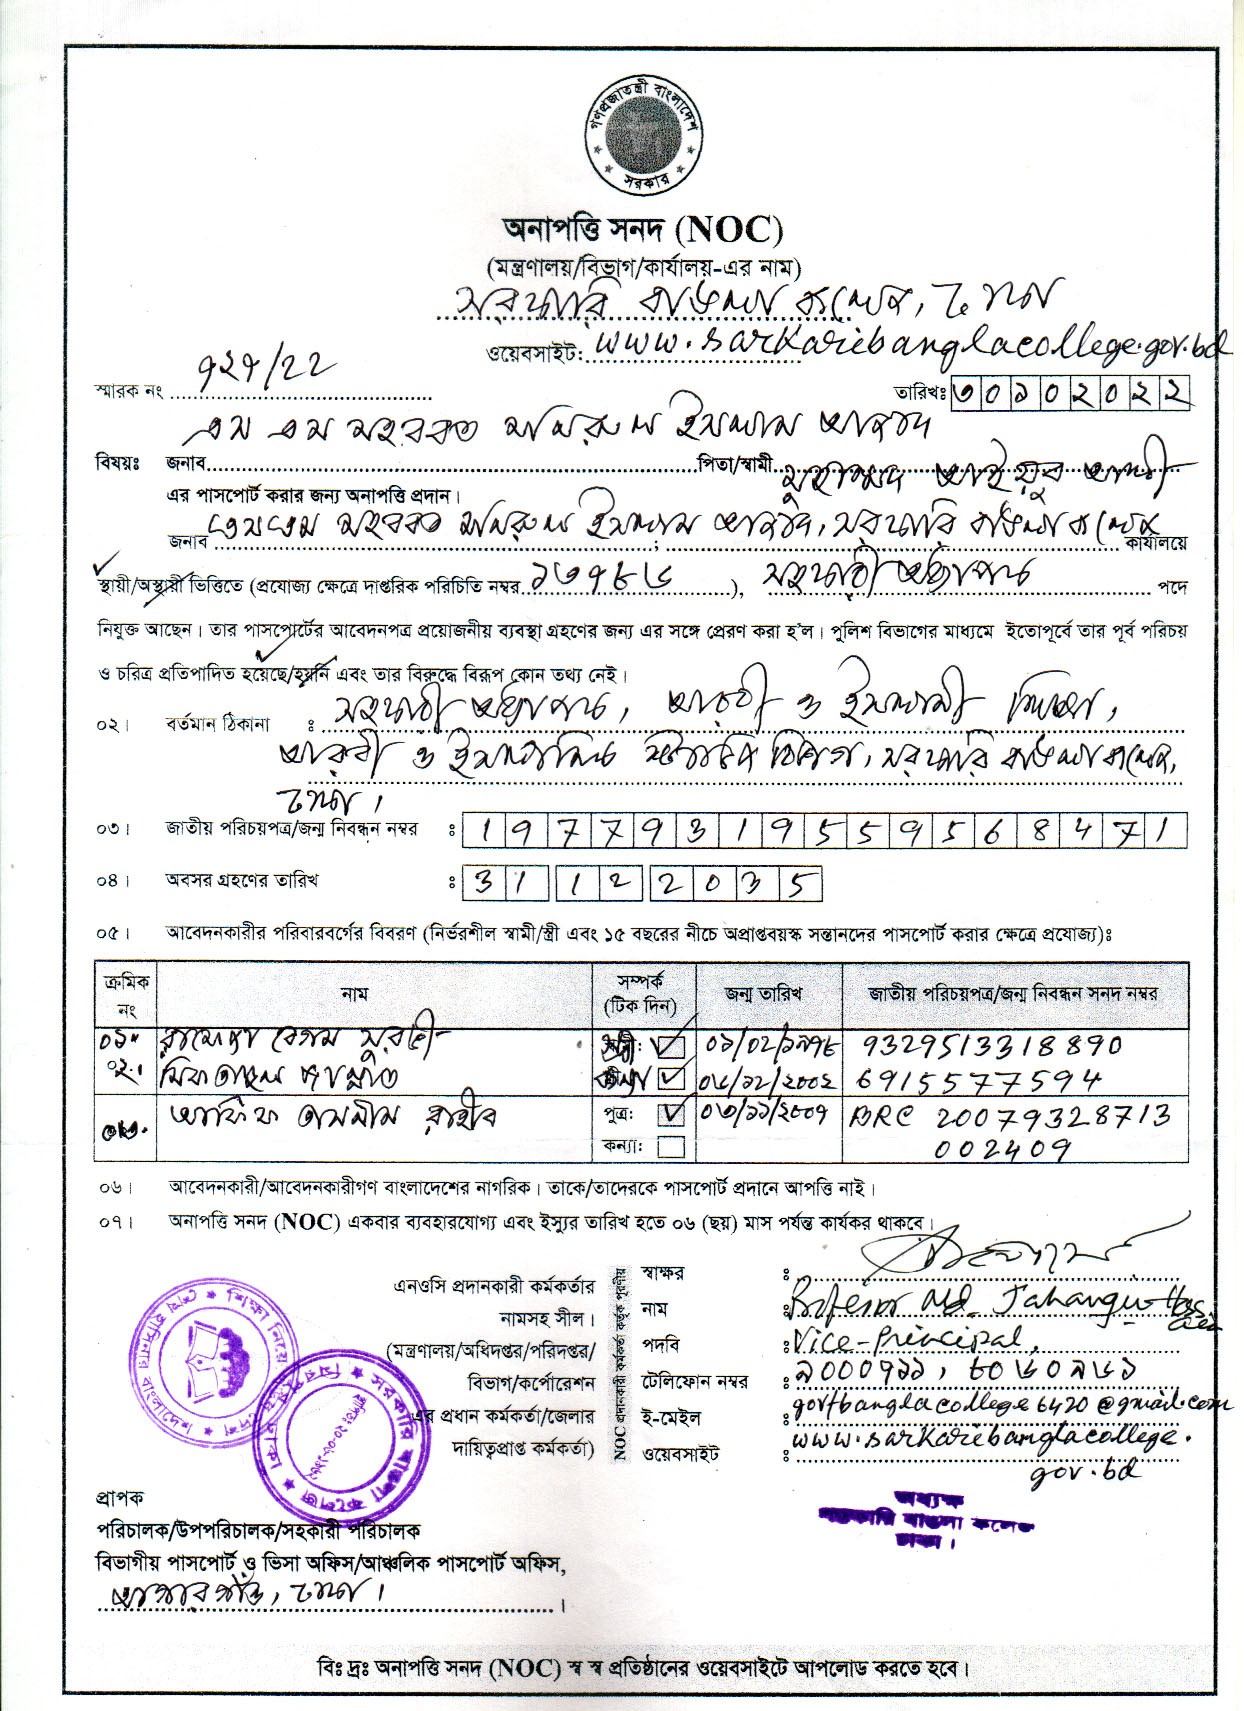 গণপ্রজাতন্ত্রী বাংলাদেশ
সরকার
অনাপত্তি সনদ (NOC)
(মন্ত্রণালয়/বিভাগ/কার্যালয়-এর নাম)
সরকারি বাঙলা কলেজ, ঢাকা
ওয়েবসাইট: www.sarkaribanglacollege.gov.bd
স্মারক নং ৭২৭/২২
তারিখঃ ৩০১০২০২২
এস এম মহব্বত মনিরুল ইসলাম আজাদ
বিষয়ঃ জনাব পিতা/স্বামী মুহাম্মদ আইয়ুব আলী
এর পাসপোর্ট করার জন্য অনাপত্তি প্রদান।
জনাব এস এম মহব্বত মনিরুল ইসলাম আজাদ, সরকারি বাঙলা কলেজ কার্যালয়ে
স্থায়ী/অস্থায়ী ভিত্তিতে (প্রযোজ্য ক্ষেত্রে দাপ্তরিক পরিচিতি নম্বর ১৬৭৮৬), সহকারী অধ্যাপক পদে
নিযুক্ত আছেন। তার পাসপোর্টের আবেদনপত্র প্রয়োজনীয় ব্যবস্থা গ্রহণের জন্য এর সঙ্গে প্রেরণ করা হ'ল। পুলিশ বিভাগের মাধ্যমে ইতোপূর্বে তার পূর্ব পরিচয়
ও চরিত্র প্রতিপাদিত হয়েছে/হয়নি এবং তার বিরুদ্ধে বিরূপ কোন তথ্য নেই।
০২। বর্তমান ঠিকানা : সহকারী অধ্যাপক, আরবী ও ইসলামী শিক্ষা,
আরবী ও ইসলামিক স্টাডিজ বিভাগ, সরকারি বাঙলা কলেজ,
ঢাকা।
০৩। জাতীয় পরিচয়পত্র/জন্ম নিবন্ধন নম্বর : 19779319559568471
০৪। অবসর গ্রহণের তারিখ : 31 12 2035
০৫। আবেদনকারীর পরিবারবর্গের বিবরণ (নির্ভরশীল স্বামী/স্ত্রী এবং ১৫ বছরের নীচে অপ্রাপ্তবয়স্ক সন্তানদের পাসপোর্ট করার ক্ষেত্রে প্রযোজ্য)ঃ
ক্রমিক নং নাম সম্পর্ক (টিক দিন) জন্ম তারিখ জাতীয় পরিচয়পত্র/জন্ম নিবন্ধন সনদ নম্বর
০১. বেগম স্ত্রী: ✓ 9329513318890
০২. জান্নাত কন্যা ✓ 6915577594
০৩. তাসনীম পুত্র: ✓ ০৩/১১/২০০৭ BRC 20079328713
কন্যা: 002409
০৬। আবেদনকারী/আবেদনকারীগণ বাংলাদেশের নাগরিক। তাকে/তাদেরকে পাসপোর্ট প্রদানে আপত্তি নাই।
০৭। অনাপত্তি সনদ (NOC) একবার ব্যবহারযোগ্য এবং ইস্যুর তারিখ হতে ০৬ (ছয়) মাস পর্যন্ত কার্যকর থাকবে।
এনওসি প্রদানকারী কর্মকর্তার
নামসহ সীল।
(মন্ত্রণালয়/অধিদপ্তর/পরিদপ্তর/
বিভাগ/কর্পোরেশন
এর প্রধান কর্মকর্তা/জেলার
দায়িত্বপ্রাপ্ত কর্মকর্তা)
NOC প্রদানকারী কর্মকর্তা কর্তৃক পূরণীয়
স্বাক্ষর :
নাম : Professor Md. Jahangir Hossain
পদবি : Vice-Principal,
টেলিফোন নম্বর : ৯০০০৭১১, ৮০৬০৯৬১
ই-মেইল : govtbanglacollege6420@gmail.com
ওয়েবসাইট : www.sarkaribanglacollege.
gov.bd
সরকারি বাঙলা কলেজ
অধ্যক্ষ
সরকারি বাঙলা কলেজ
ঢাকা।
প্রাপক
পরিচালক/উপপরিচালক/সহকারী পরিচালক
বিভাগীয় পাসপোর্ট ও ভিসা অফিস/আঞ্চলিক পাসপোর্ট অফিস,
আগারগাঁও, ঢাকা।
বিঃ দ্রঃ অনাপত্তি সনদ (NOC) স্ব স্ব প্রতিষ্ঠানের ওয়েবসাইটে আপলোড করতে হবে।